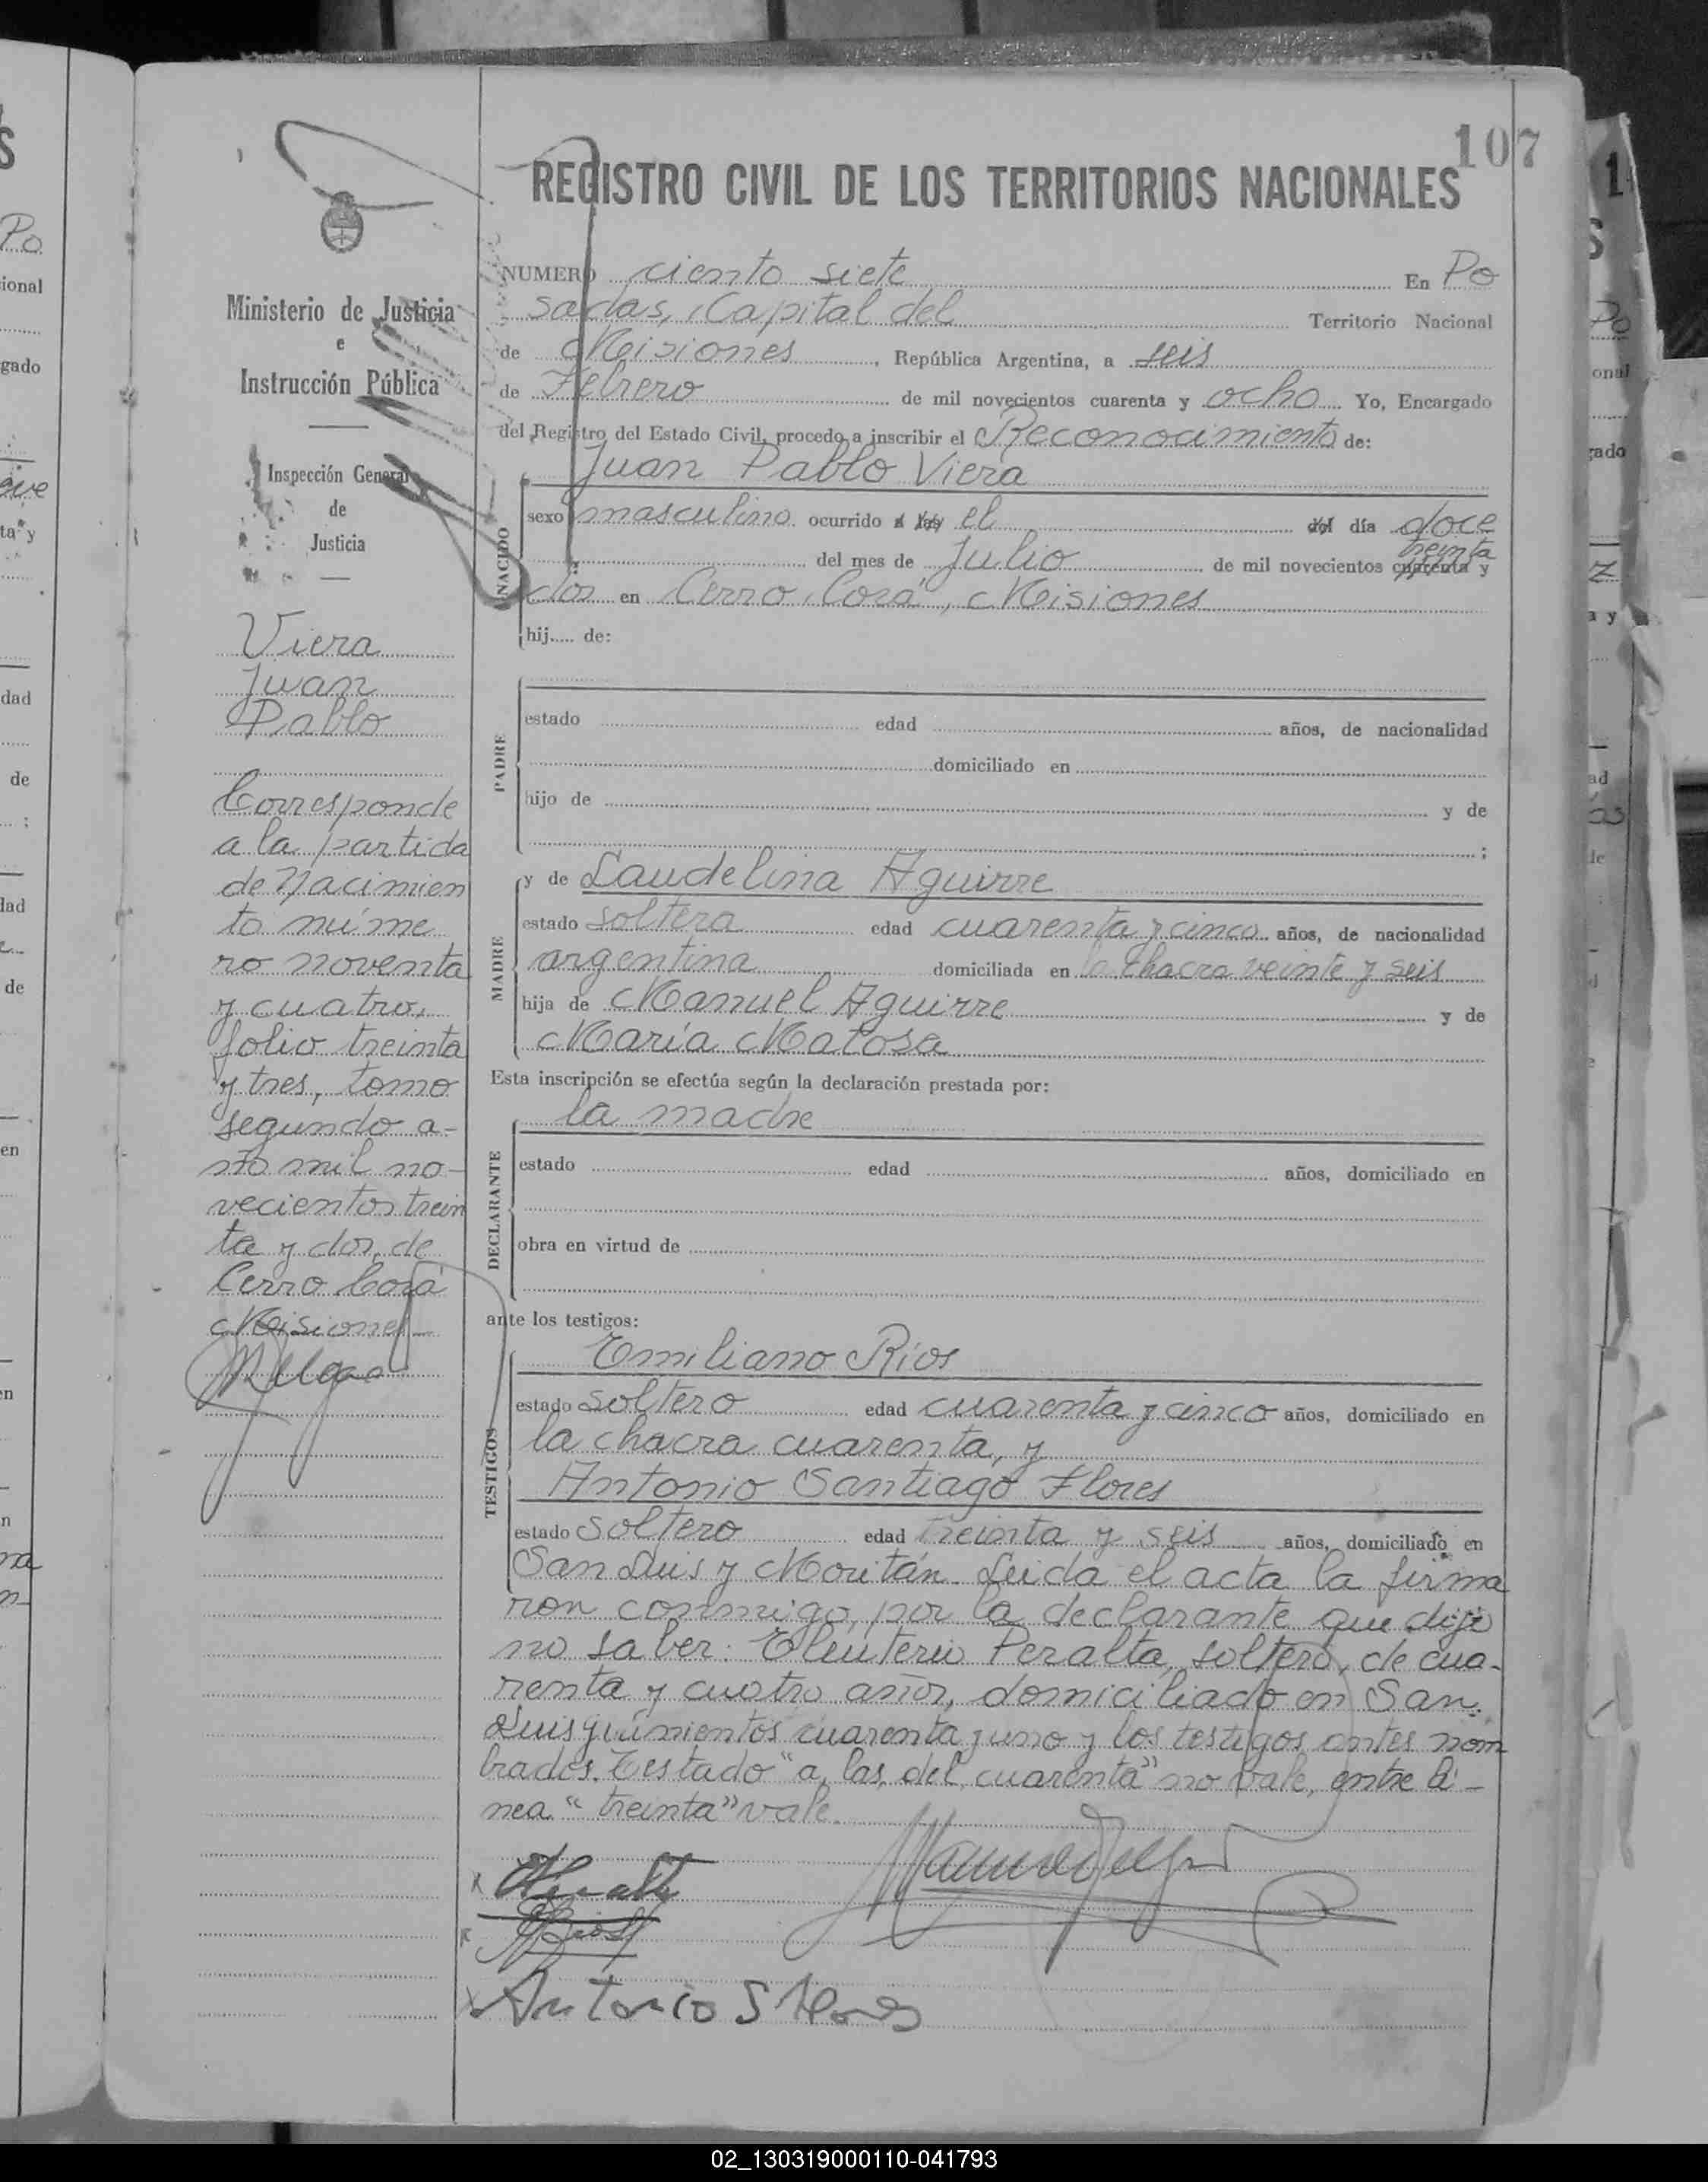 107
REGISTRO CIVIL DE LOS TERRITORIOS NACIONALES
NUMERO ciento siete En Po
sadas, Capital del Territorio Nacional
de Misiones, República Argentina, a seis
de Febrero de mil novecientos cuarenta y ocho Yo, Encargado
del Registro del Estado Civil, procedo a inscribir el Reconocimiento de:
Juan Pablo Viera
NACIDO
sexo masculino ocurrido a las el del día doce
treinta
del mes de Julio de mil novecientos cuarenta y
dos en Cerro Corá, Misiones
hij..... de:
PADRE
estado edad años, de nacionalidad
domiciliado en
hijo de y de
;
MADRE
y de Laudelina Aguirre
estado soltera edad cuarenta y cinco años, de nacionalidad
argentina domiciliada en la chacra veinte y seis
hija de Manuel Aguirre y de
María Matosa
Esta inscripción se efectúa según la declaración prestada por:
la madre
DECLARANTE
estado edad años, domiciliado en
obra en virtud de
ante los testigos:
TESTIGOS
Emiliano Ríos
estado soltero edad cuarenta y cinco años, domiciliado en
la chacra cuarenta, y
Antonio Santiago Flores
estado soltero edad treinta y seis años, domiciliado en
San Luis y Moritán. Leida el acta la firma
ron conmigo, por la declarante que dijo
no saber: Eleuterio Peralta, soltero, de cua-
renta y cuatro años, domiciliado en San
Luis quinientos cuarenta y uno y los testigos antes nom
brados. Testado "a, las, del, cuarenta" no vale, entre lí-
nea "treinta" vale.
Antonio S Flores
Ministerio de Justicia
e
Instrucción Pública
Inspección General
de
Justicia
Viera
Juan
Pablo
Corresponde
a la partida
de Nacimien
to núme
ro noventa
y cuatro,
folio treinta
y tres, tomo
segundo a-
ño mil no-
vecientos trein
ta y dos, de
Cerro Corá
Misiones
02_130319000110-041793